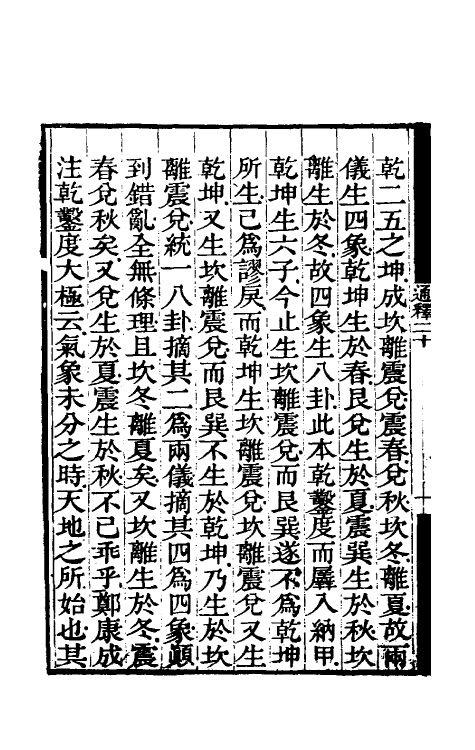 乾二五之坤成坎離震兌震春兌秋坎冬離夏故兩
儀生四象乾坤生於春艮兌生於夏震巽生於秋坎
離生於冬故四象生八卦此本乾鑿度而羼入納甲
乾坤生六子今止生坎離震兌而艮巽遂不爲乾坤
所生已爲謬戾而乾坤生坎離震兌坎離震兌又生
乾坤又生坎離震兌而艮巽不生於乾坤乃生於坎
離震兌統一八卦摘其二爲兩儀摘其四爲四象顚
到錯亂全無條理且坎冬離夏矣又坎離生於冬震
春兌秋矣又兌生於夏震生於秋不已乖乎鄭康成
注乾鑿度大極云氣象未分之時天地之所始也其
通釋二十